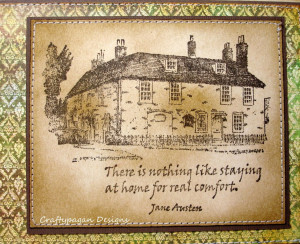 There is nothing like staying
at home for real comfort.
Jane Austen
Craftypagan Designs